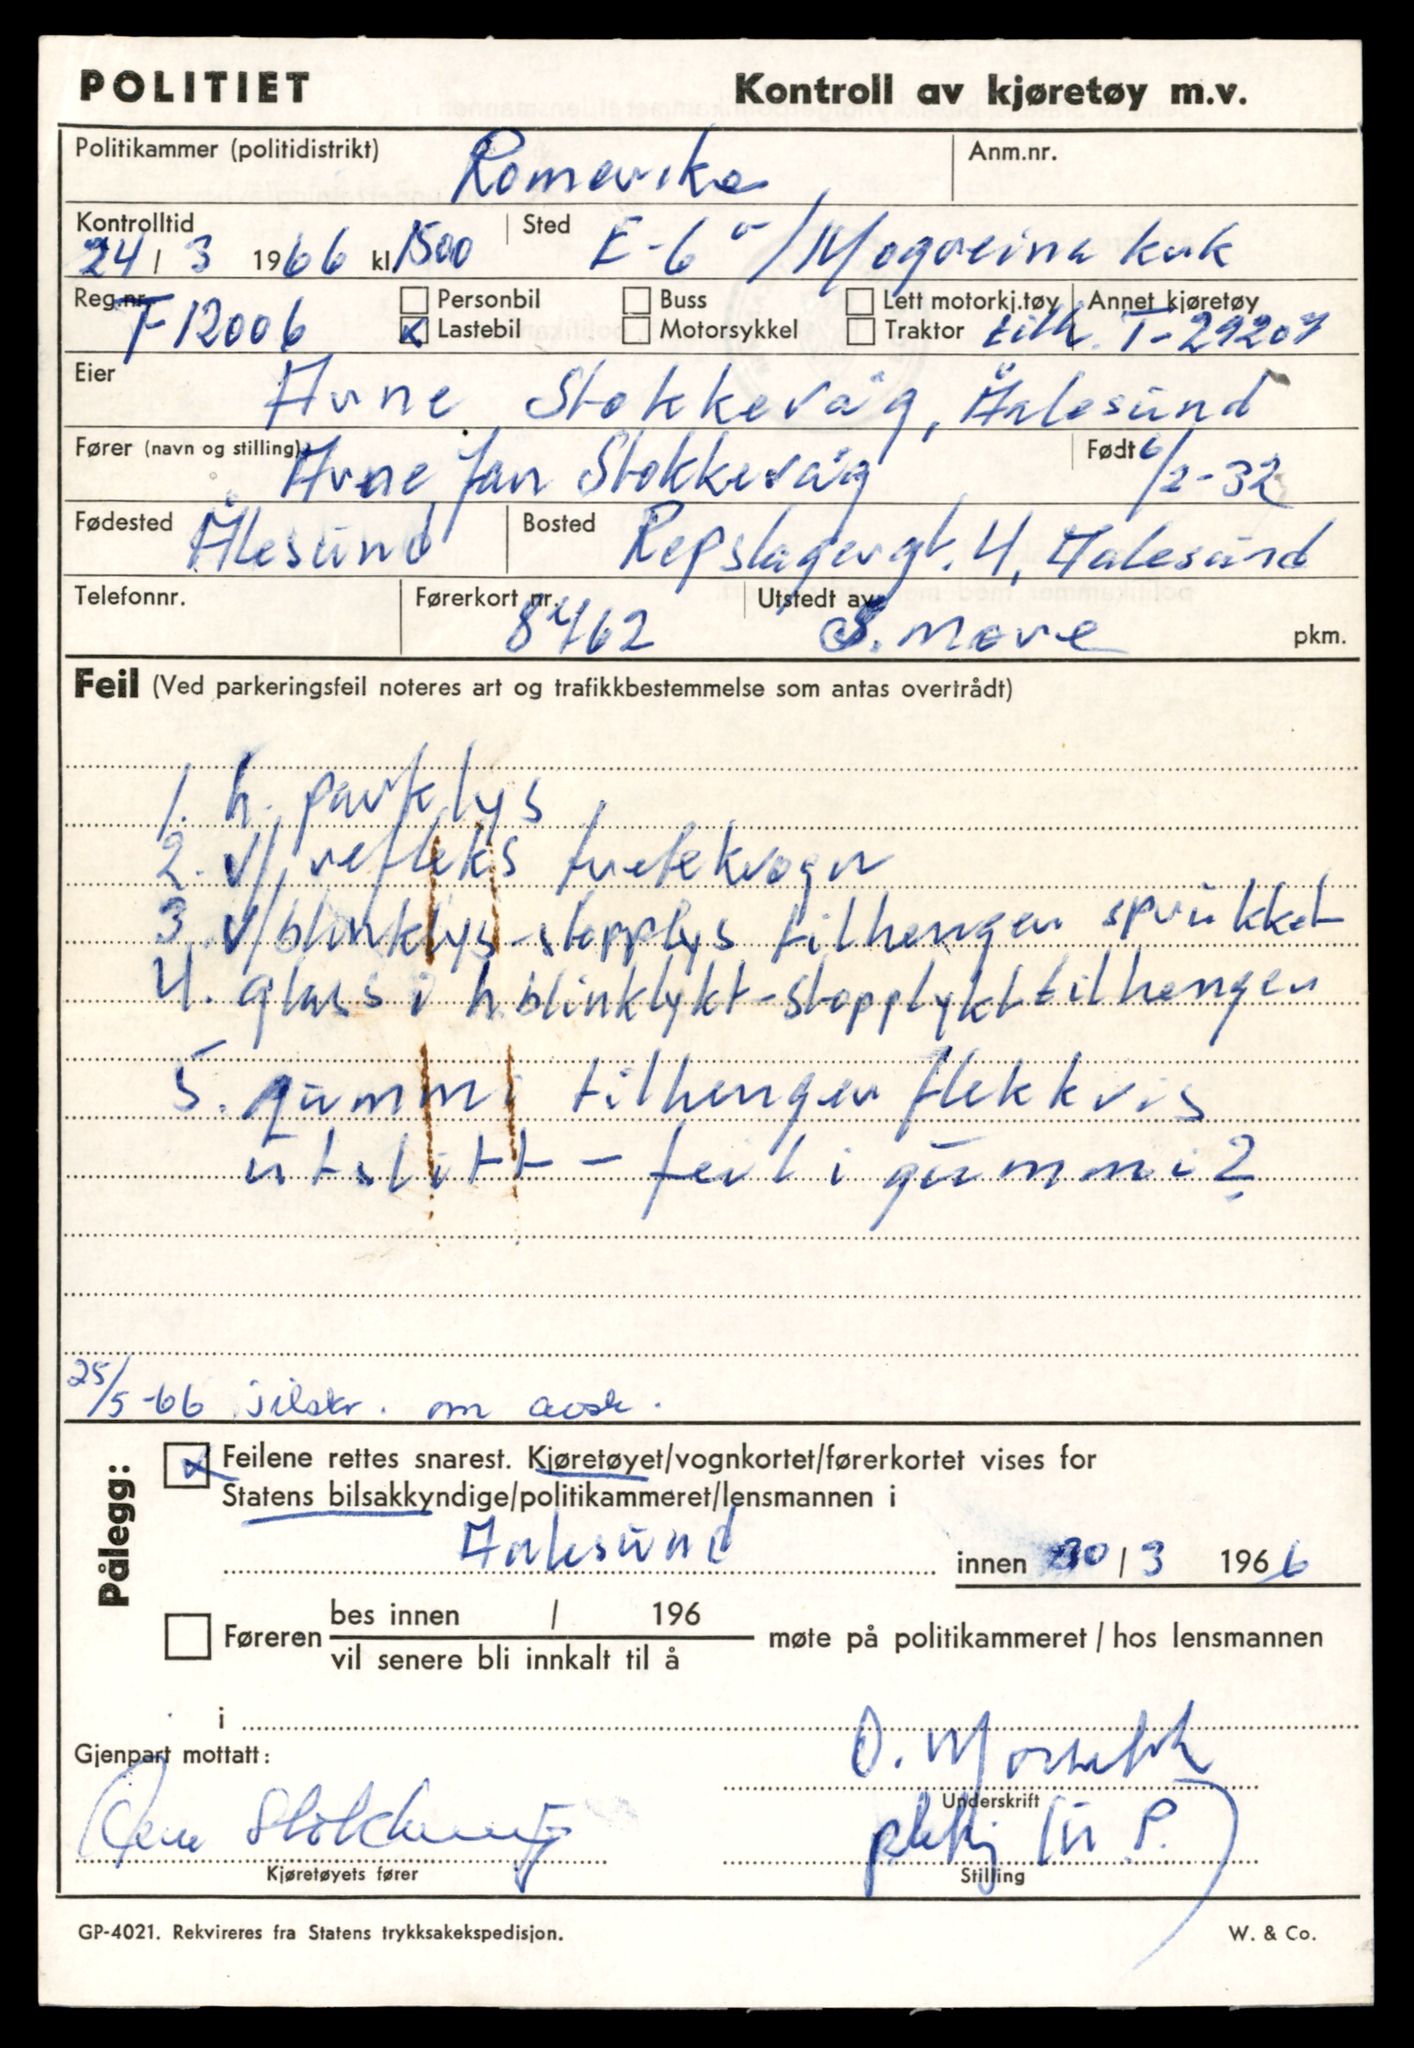 POLITIET Kontroll av kjøretøy m.v.
Politikammer (politidistrikt) Romerike Anm.nr.
Kontrolltid 24/3 1966 kl. 1500 Sted E-6 v/Mogreina kuk
Reg.nr. F 12006 Personbil Buss Lett motorkj.tøy Annet kjøretøy
x Lastebil Motorsykkel Traktor tilh. T-29207
Eier Arne Stokkevåg, Aalesund
Fører (navn og stilling) Arne Jan Stokkevåg Født 6/2-32
Fødested Ålesund Bosted Repslagergt. 4, Aalesund
Telefonnr. Førerkort nr. 8462 Utstedt av S. Møre pkm.
Feil (Ved parkeringsfeil noteres art og trafikkbestemmelse som antas overtrådt)
1. h. parklys
2. v/ refleks trekkvogn
3. v/blinklys-stopplys tilhenger sprukket
4. glass i h. blinklykt-stopplykt tilhenger
5. gummi tilhenger flekkvis
utslitt - feil i gummi?
25/5-66 tilskr. om
Pålegg: x Feilene rettes snarest. Kjøretøyet/vognkortet/førerkortet vises for
Statens bilsakkyndige/politikammeret/lensmannen i
Aalesund innen 30/3 1966
Føreren bes innen / 196
vil senere bli innkalt til å møte på politikammeret / hos lensmannen
i
Gjenpart mottatt: O.
Underskrift
Arne Stokkevåg (U.P.)
Kjøretøyets fører Stilling
GP-4021. Rekvireres fra Statens trykksakekspedisjon. W. & Co.